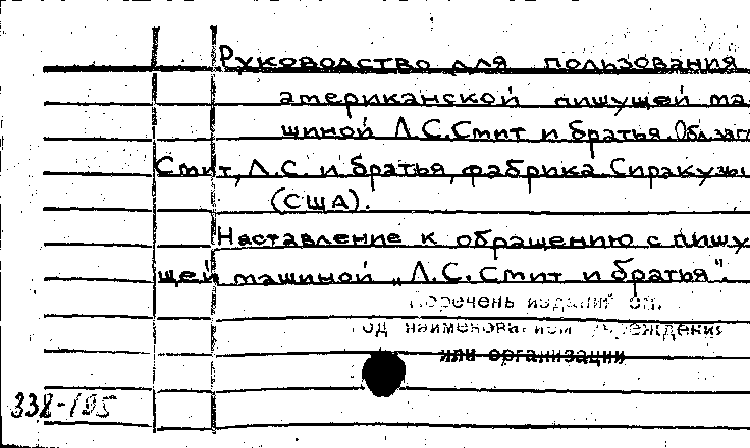 Руководство для пользования
американской пишущей ма
шиной Л.С.Смит и братья. Обл. загл.
Смит, Л.С. и братья, фабрика Сиракузы
(США).
Наставление к обращению с пишу
щей машиной „Л.С.Смит и братья".
Перечень изданий см.
под наименованием учреждения
или организации
338-195